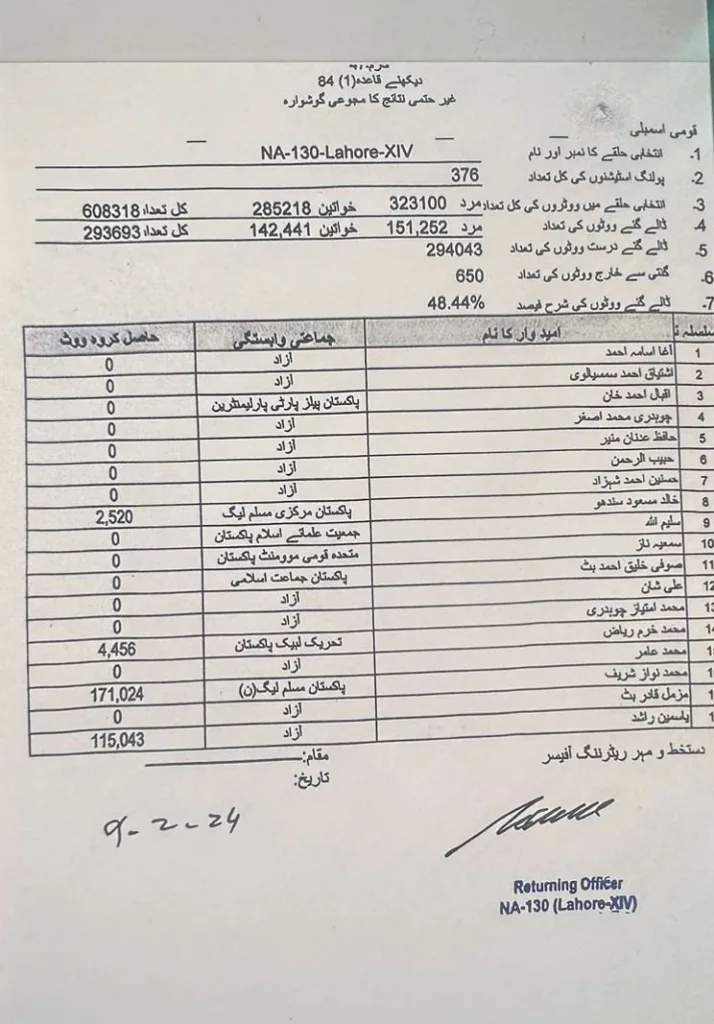 دیکھئے قاعدہ(1) 84
غیر حتمی نتائج کا مجموعی گوشوارہ
قومی اسمبلی
1۔ انتخابی حلقے کا نمبر اور نام NA-130-Lahore-XIV
2۔ پولنگ اسٹیشنوں کی کل تعداد 376
3۔ انتخابی حلقے میں ووٹروں کی کل تعداد مرد 323100 خواتین 285218 کل تعداد 608318
4۔ ڈالے گئے ووٹوں کی تعداد مرد 151,252 خواتین 142,441 کل تعداد 293693
5۔ ڈالے گئے درست ووٹوں کی تعداد 294043
6۔ گنتی سے خارج ووٹوں کی تعداد 650
7۔ ڈالے گئے ووٹوں کی شرح فیصد 48.44%
سلسلہ امیدوار کا نام جماعتی وابستگی حاصل کردہ ووٹ
1 آغا اسامہ احمد آزاد 0
2 اشتیاق احمد سمسیالوی آزاد 0
3 اقبال احمد خان پاکستان پیپلز پارٹی پارلیمنٹرین 0
4 چوہدری محمد اصغر آزاد 0
5 حافظ عدنان منیر آزاد 0
6 حبیب الرحمن آزاد 0
7 حسنین احمد شہزاد آزاد 0
8 خالد مسعود سندھو پاکستان مرکزی مسلم لیگ 2,520
9 سلیم اللہ جمعیت علمائے اسلام پاکستان 0
10 سمعیہ ناز متحدہ قومی موومنٹ پاکستان 0
11 صوفی خلیق احمد بٹ پاکستان جماعت اسلامی 0
12 علی شان آزاد 0
13 محمد امتیاز چوہدری آزاد 0
محمد خرم ریاض تحریک لبیک پاکستان 4,456
محمد عامر آزاد 0
محمد نواز شریف پاکستان مسلم لیگ(ن) 171,024
مزمل قادر بٹ آزاد 0
یاسمین راشد آزاد 115,043
دستخط و مہر ریٹرننگ آفیسر مقام:
تاریخ:
9-2-24
Returning Officer
NA-130 (Lahore-XIV)